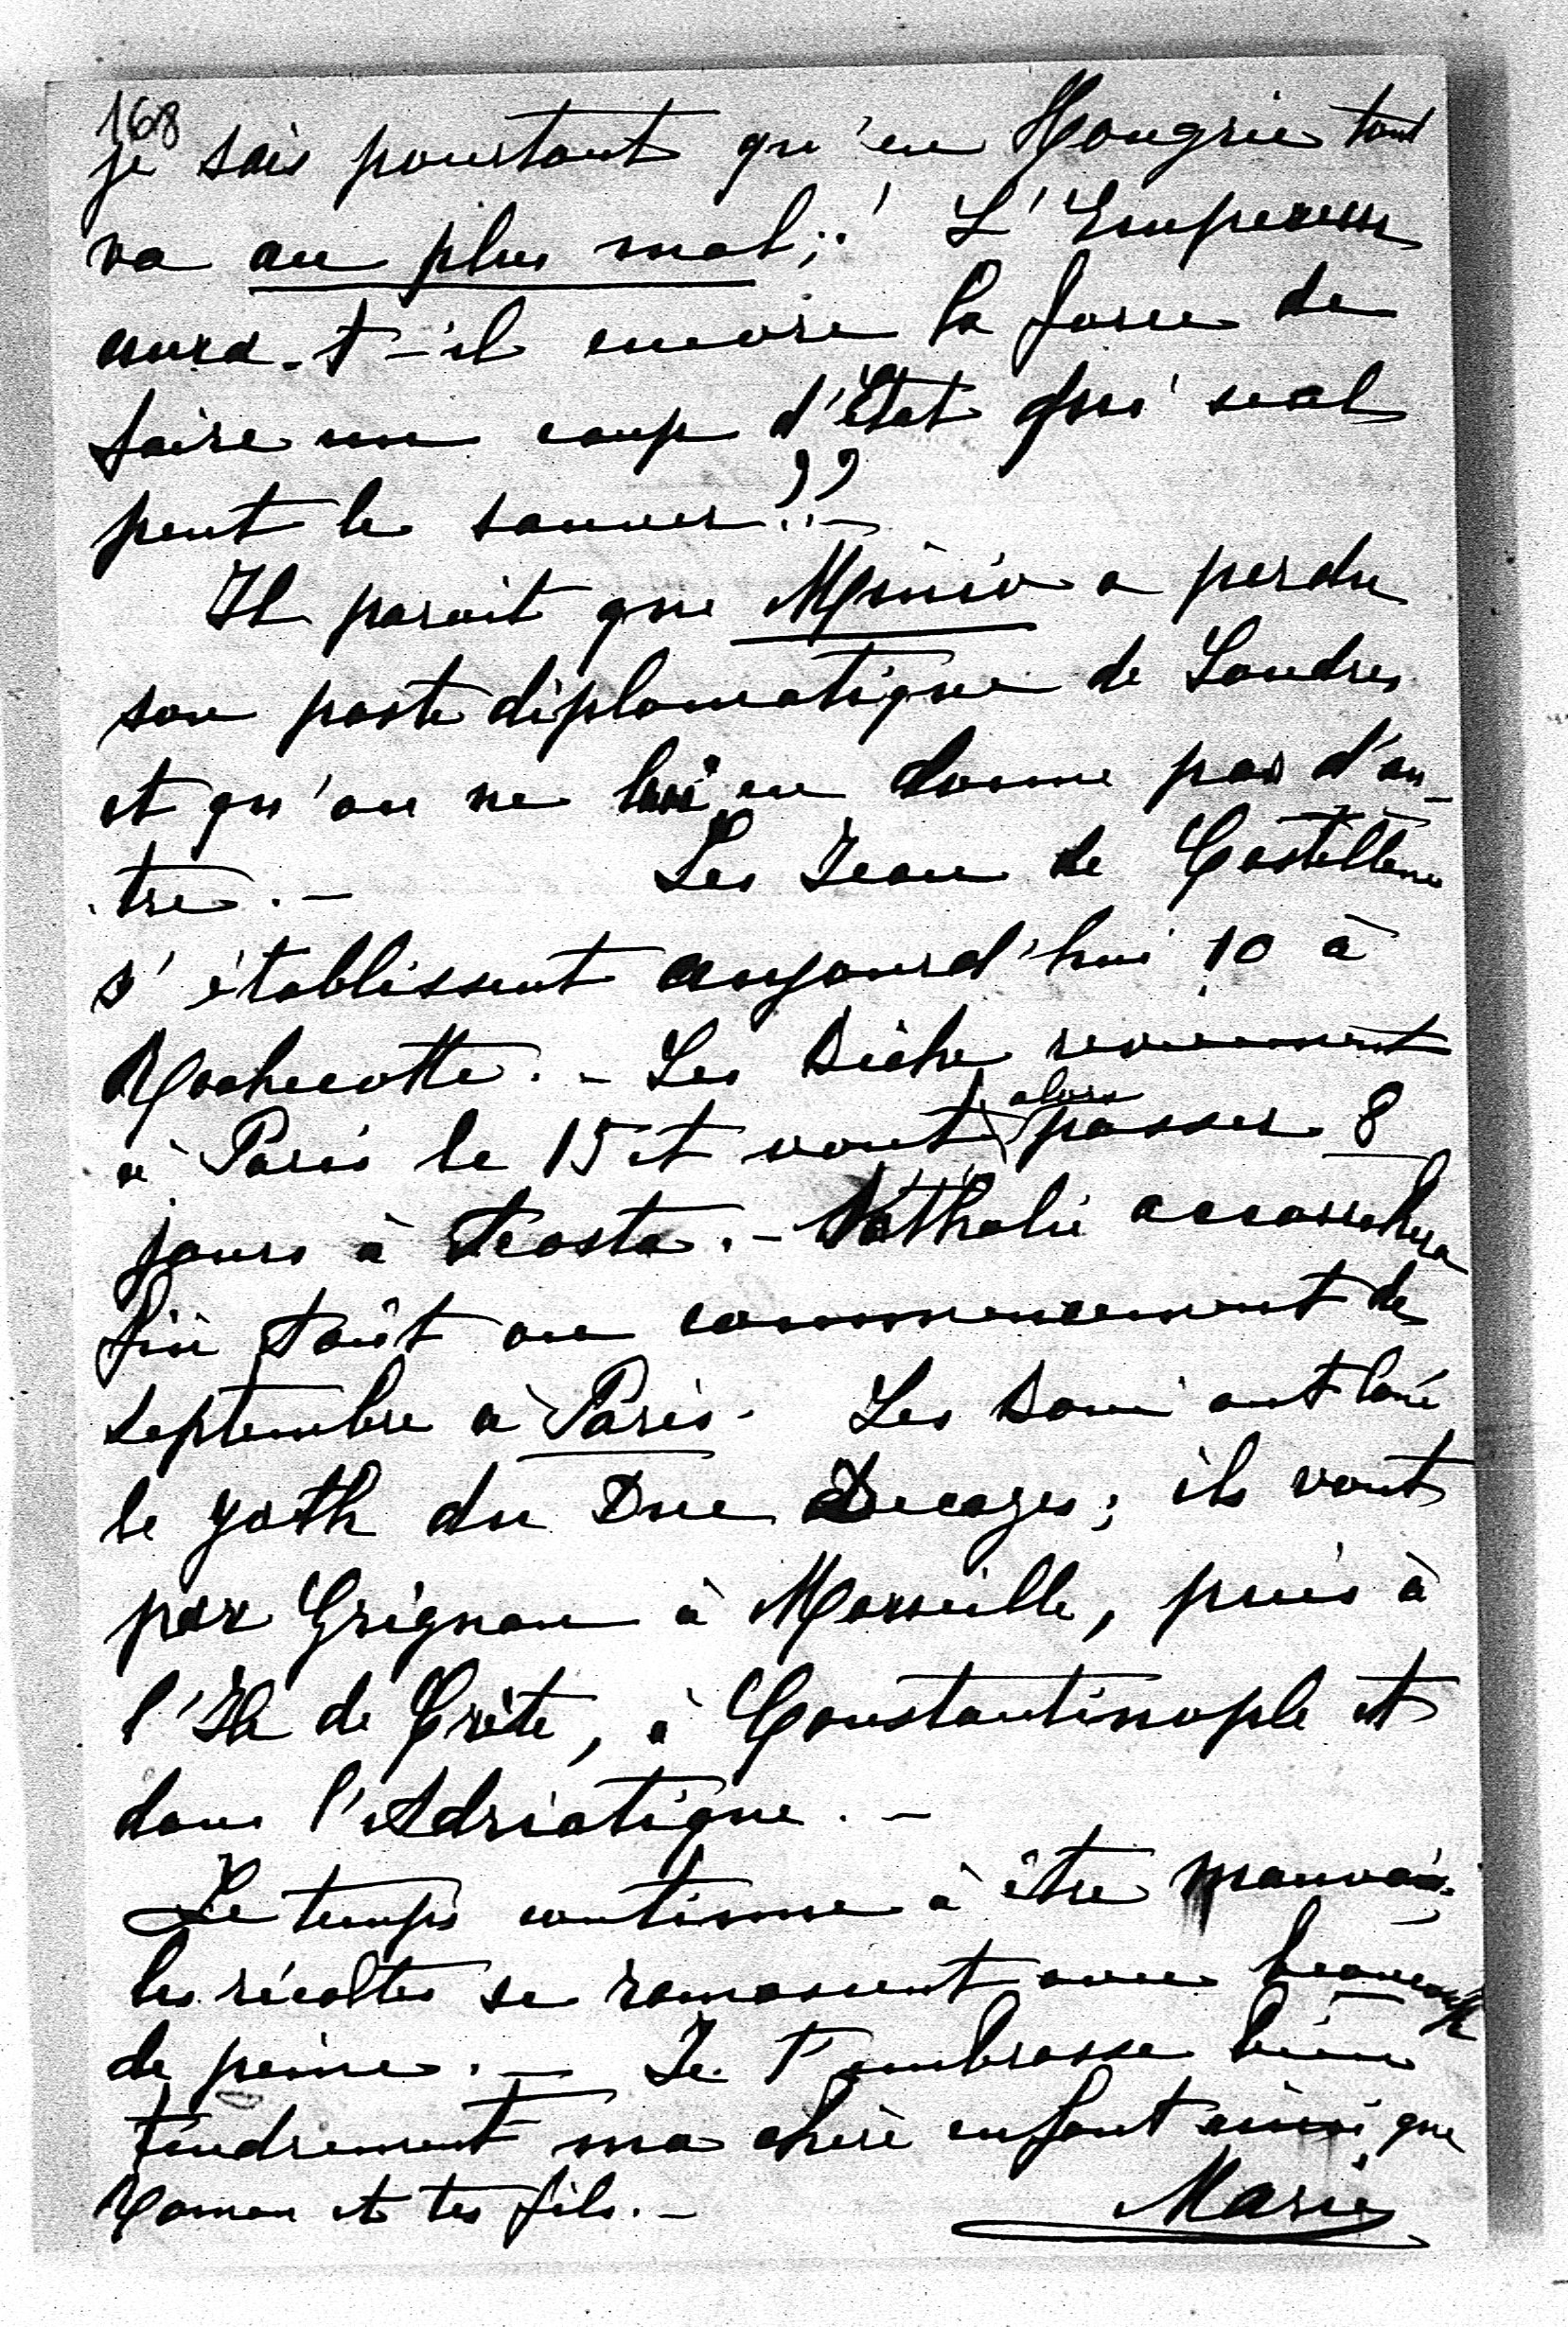 168
je sais pourtant qu'en Hongrie tout
va au plus mal;! L'Empereur
aura-t-il encore la force de
faire un coup d'État qui seul
peut le sauver??—
Il parait que Minio a perdu
son poste diplomatique de Londres
et qu'on ne lui en donne pas d'au-
tre.— Les Jean de Castellane
s'établissent aujourd'hui 10 à
Rochecotte.— Les Biche reviennent
à Paris le 15 et vont alors passer 8
jours à Acosta.— Nathalie accouchera
fin Août ou commencement de
septembre à Paris. Les Boni ont loué
le yoth du Duc Decazes; ils vont
par Grignan à Marseille, puis à
l'Ile de Crète, à Constantinople et
dans l'Adriatique.—
Le temps continue à être mauvais;
les récoltes se ramassent avec beaucoup
de peine.— Je t'embrasse bien
tendrement ma chère enfant ainsi que
Roman et tes fils.— Marie